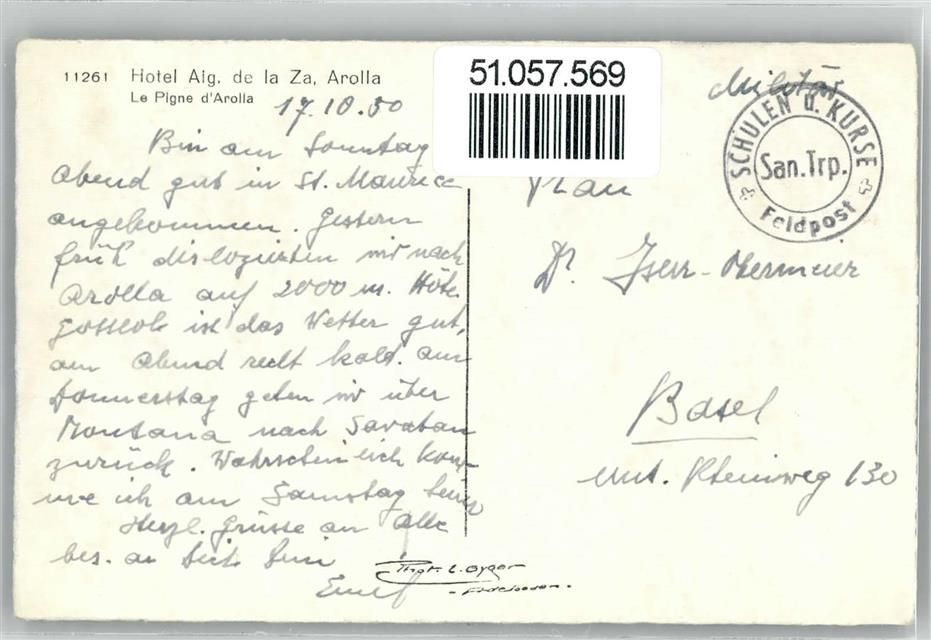 11261 Hotel Aig. de la Za, Arolla
Le Pigne d'Arolla
17.10.50
Bin am Sonntag
Abend gut in St. Maurice
angekommen. Gestern
früh dislozierten wir nach
Arolla auf 2000 m. Höhe.
Gottlob ist das Wetter gut,
am Abend recht kalt. am
Donnerstag gehen wir über
Montana nach Savatan
zurück. Wahrscheinlich kom-
me ich am Samstag heim
Herzl. Grüsse an alle
bes. an Dich Dein
Emil
Phot. C. Gyger
- Adelboden -
51.057.569
Militär
SCHULEN u. KURSE
San. Trp.
Feldpost
Frau
Dr. Iserr-Obermeier
Basel
unt. Rheinweg 130